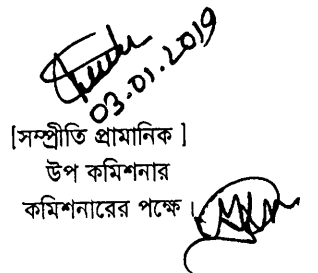 03.01.2019
[সম্প্রীতি প্রামানিক]
উপ কমিশনার
কমিশনারের পক্ষে।